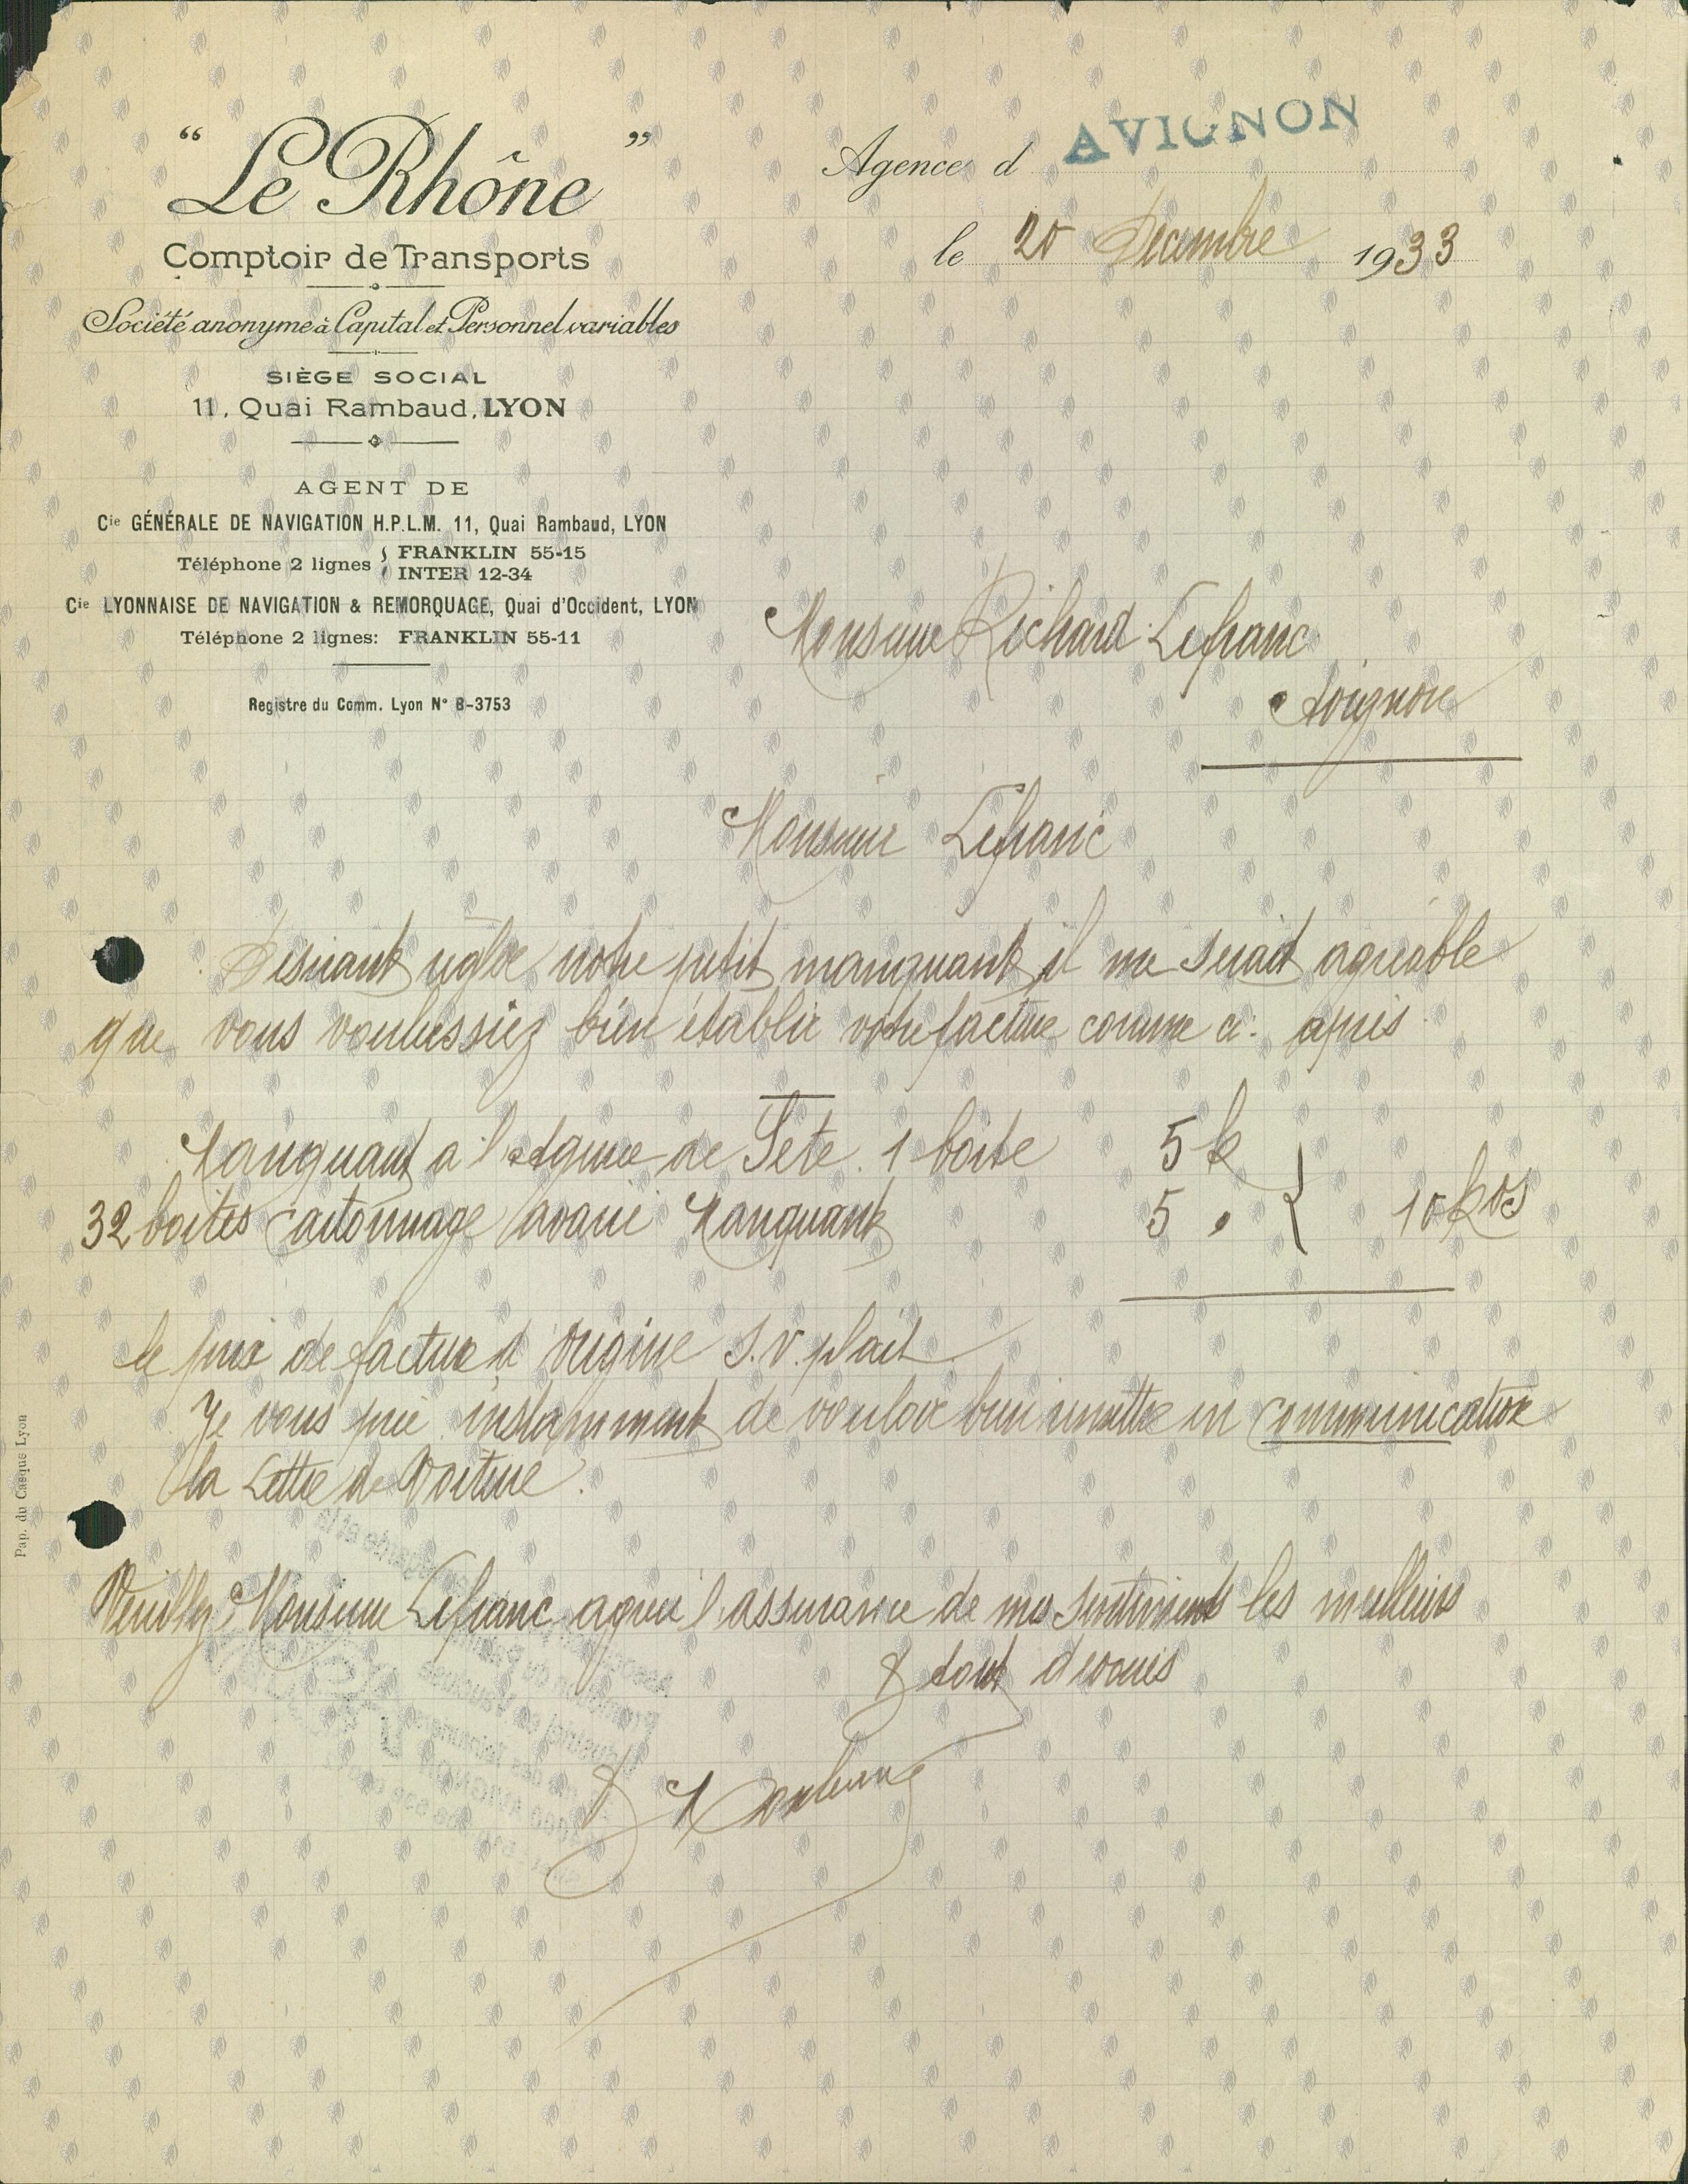 “ Le Rhône ”
Comptoir de Transports
Société anonyme à Capital et Personnel variables
SIÈGE SOCIAL
11, Quai Rambaud, LYON
AGENT DE
Cie GÉNÉRALE DE NAVIGATION H.P.L.M. 11, Quai Rambaud, LYON
Téléphone 2 lignes { FRANKLIN 55-15
INTER 12-34
Cie LYONNAISE DE NAVIGATION & REMORQUAGE, Quai d'Occident, LYON
Téléphone 2 lignes: FRANKLIN 55-11
Registre du Comm. Lyon N° B-3753
Agence d AVIGNON
le 20 Décembre 1933
Monsieur Richard Lefranc
Avignon
Monsieur Lefranc
Désirant régler notre petit manquant il me serait agréable
que vous voulussiez bien établir votre facture comme ci-après
Manquant a l'Agence de Sete. 1 boîte 5 k
32 boites cartonnage avarié Manquant 5 " } 10 kos
le prix de facture d'origine S.v. plait
Je vous prie instamment de vouloir bien remettre en communication
la Lettre de Voiture.
Veuillez Monsieur Lefranc agréer l'assurance de mes sentiments les meilleurs
& tout dévoués
Pap. du Casque Lyon